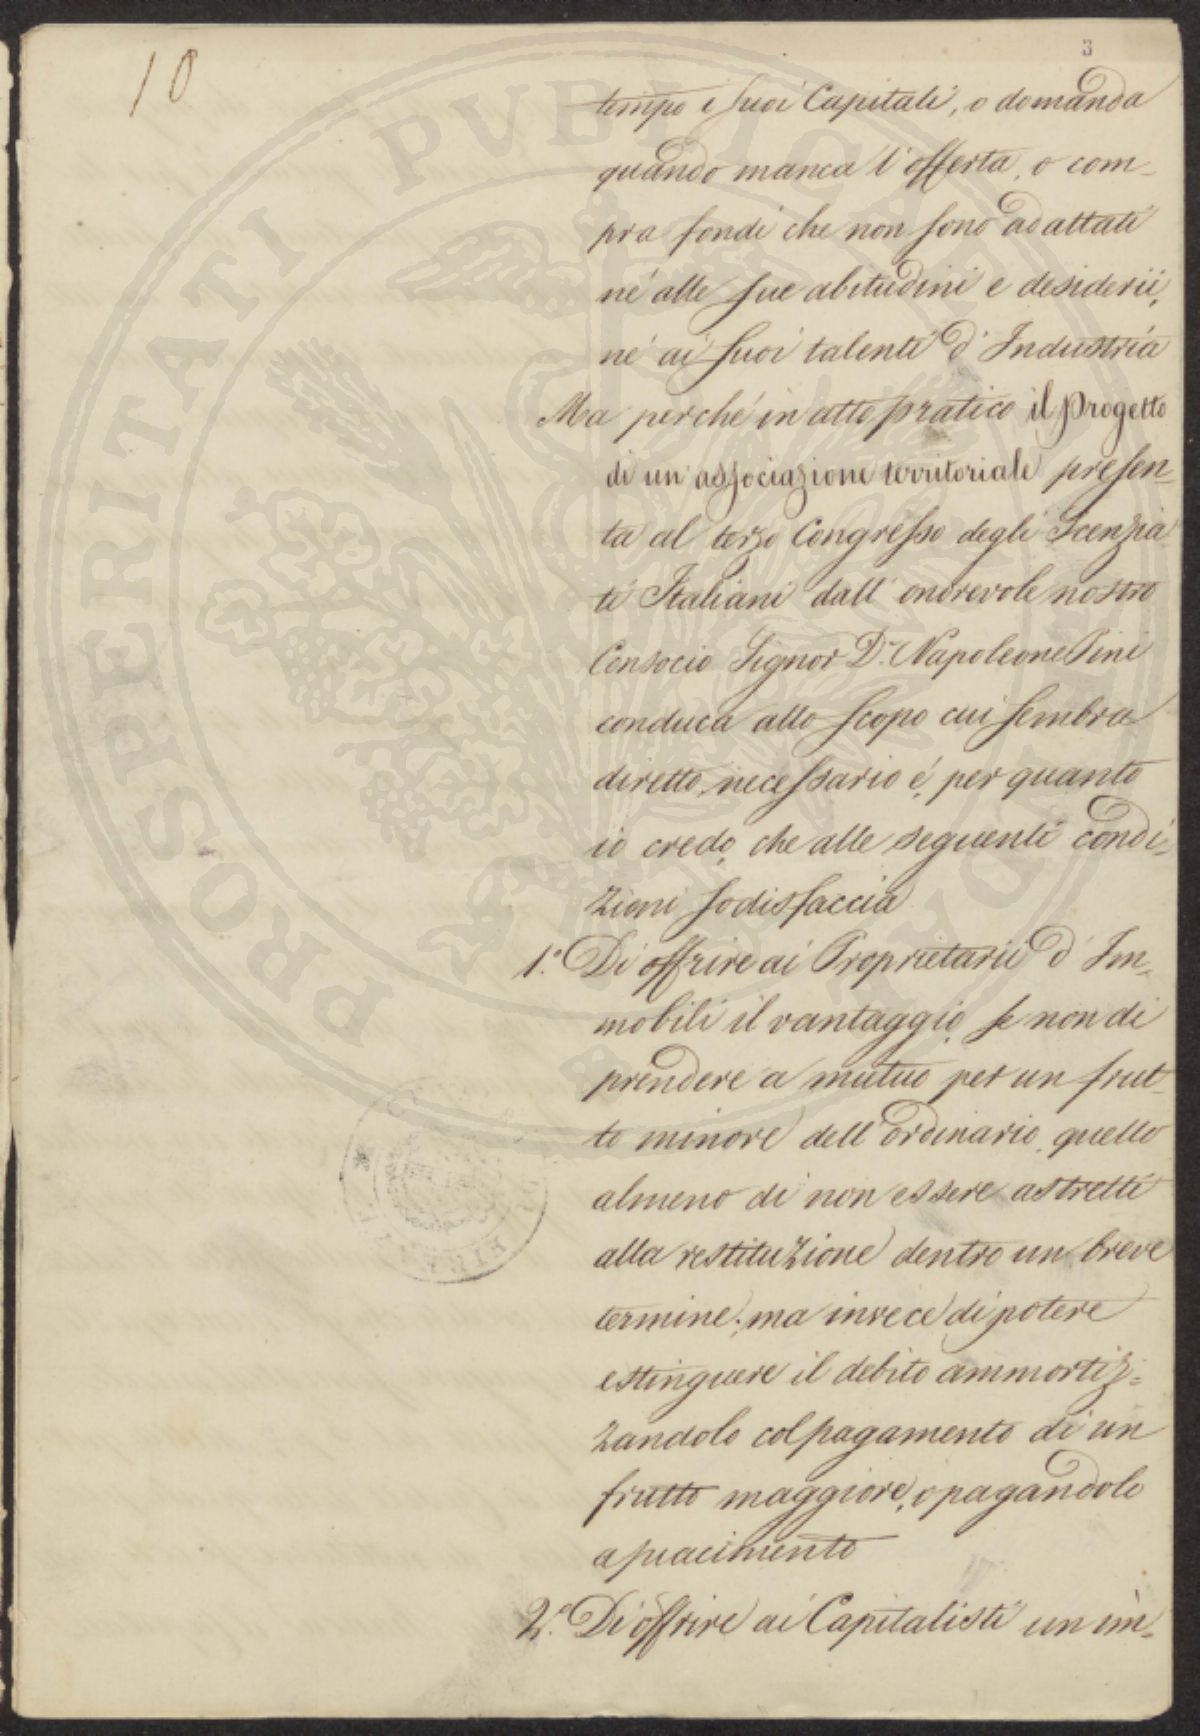 10
3
tempo i suoi Capitali, o domanda
quando manca l'offerta, o com-
pra fondi che non sono adattati
né alle sue abitudini e desiderii,
né ai suoi talenti d'Industria
Ma perché in atto pratico il Progetto
di un'associazione territoriale presen-
ta al terzo Congresso degli Scenzia
ti Italiani dall'onorevole nostro
Consocio Signor D.r Napoleone Pini
conduca allo scopo cui sembra
diretto, necessario é, per quanto
io credo, che alle seguenti condi-
zioni sodisfaccia
1.o Di offrire ai Proprietarii d'Im-
mobili il vantaggio, se non di
prendere a mutuo per un frut-
to minore dell'ordinario, quello
almeno di non essere astretti
alla restituzione dentro un breve
termine; ma invece di potere
estinguere il debito ammortiz-
zandolo col pagamento di un
frutto maggiore, o pagandolo
a piacimento
2.o Di offrire ai Capitalisti un im-
PROSPERITATI PUBLICAE